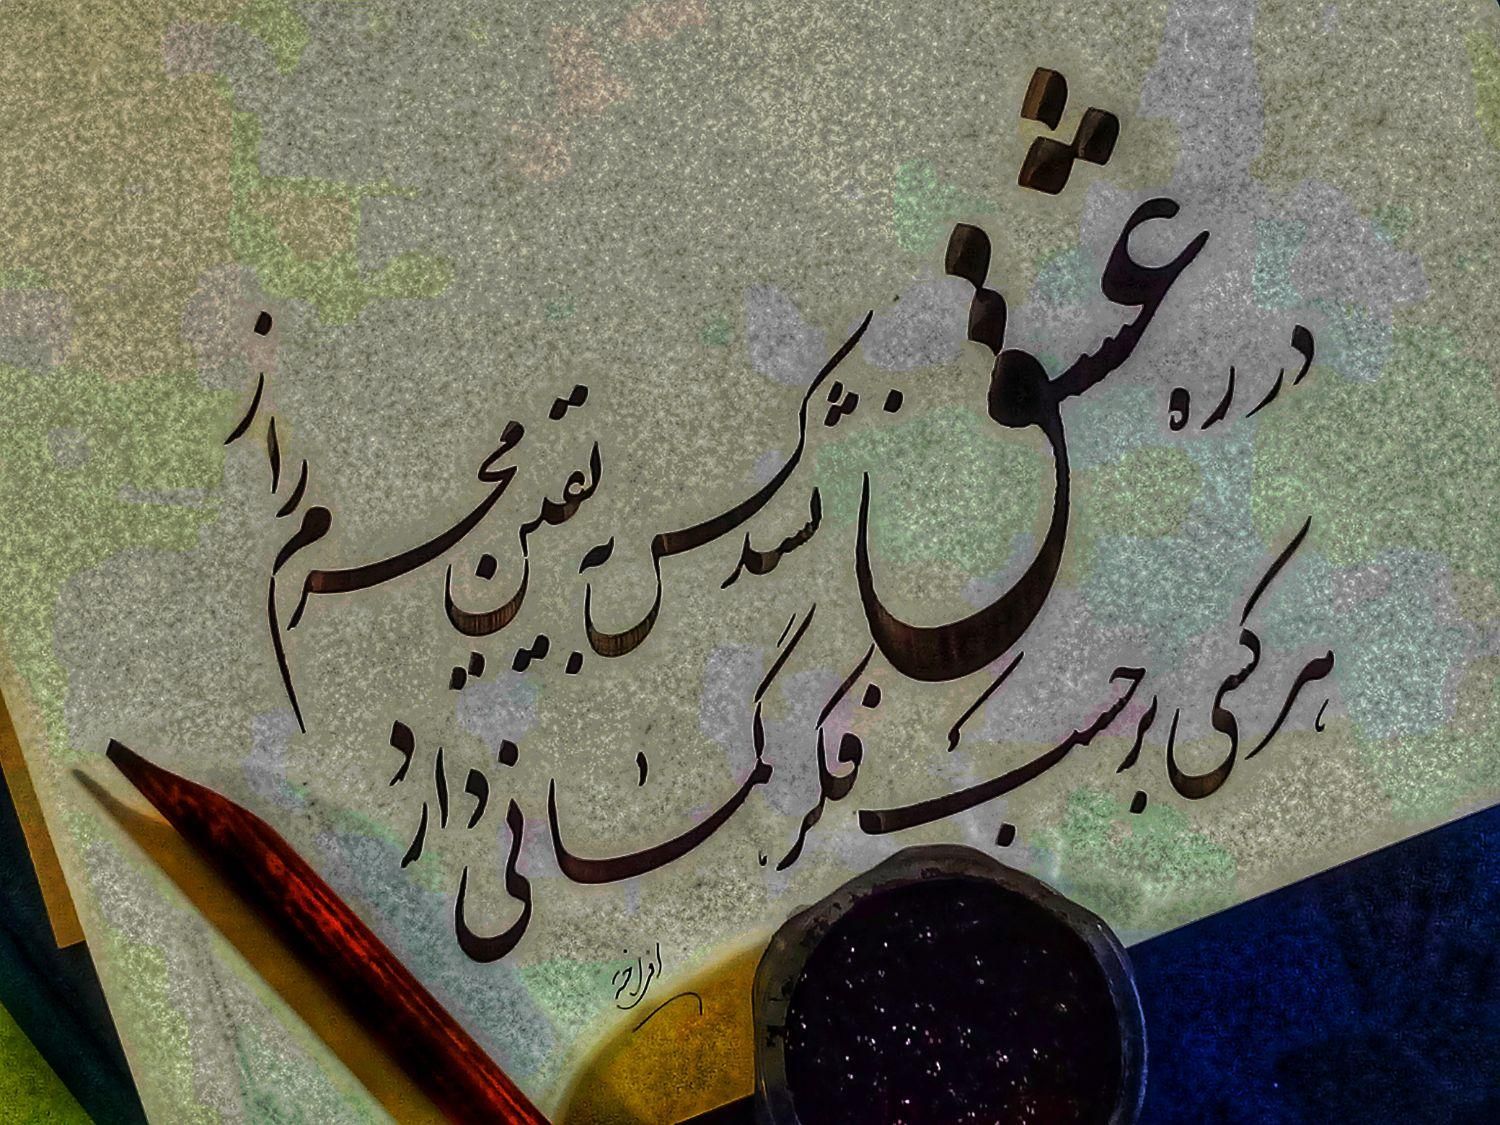 در ره عشق نشد کس به یقین محرم راز
هر کسی بر حسب فکر گمانی دارد
افراخته